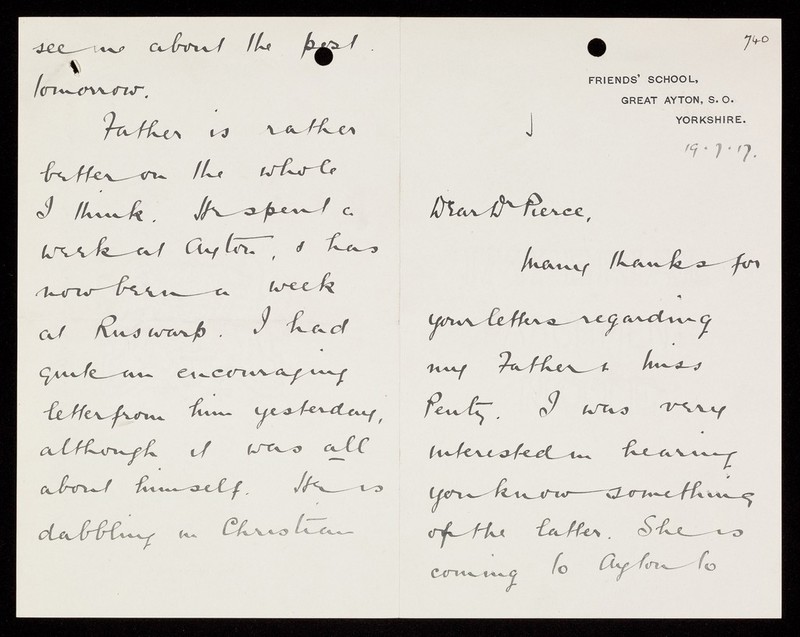 740
FRIENDS' SCHOOL,
GREAT AYTON, S. O.
YORKSHIRE.
19.7.17.
Dear Dr Pierce,
Many thanks for
your letters regarding
my Father & Miss
Penty. I was very
interested in hearing
you know something
of the latter. She is
coming to Ayton to
see me about the post
tomorrow.
Father is rather
better on the whole
I think. He spent a
week at Ayton, & has
now been a week
at Ruswarp. I had
quite an encouraging
letter from him yesterday,
although it was all
about himself. He is
dabbling in Christian